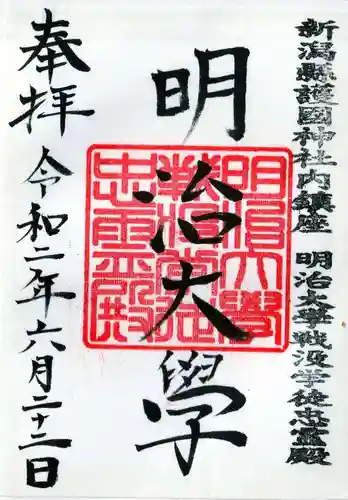 新潟縣護國神社内鎮座 明治大學戦没学徒忠霊殿
明治大學
明治大學戦没学徒忠霊殿
奉拝
令和二年六月二十二日